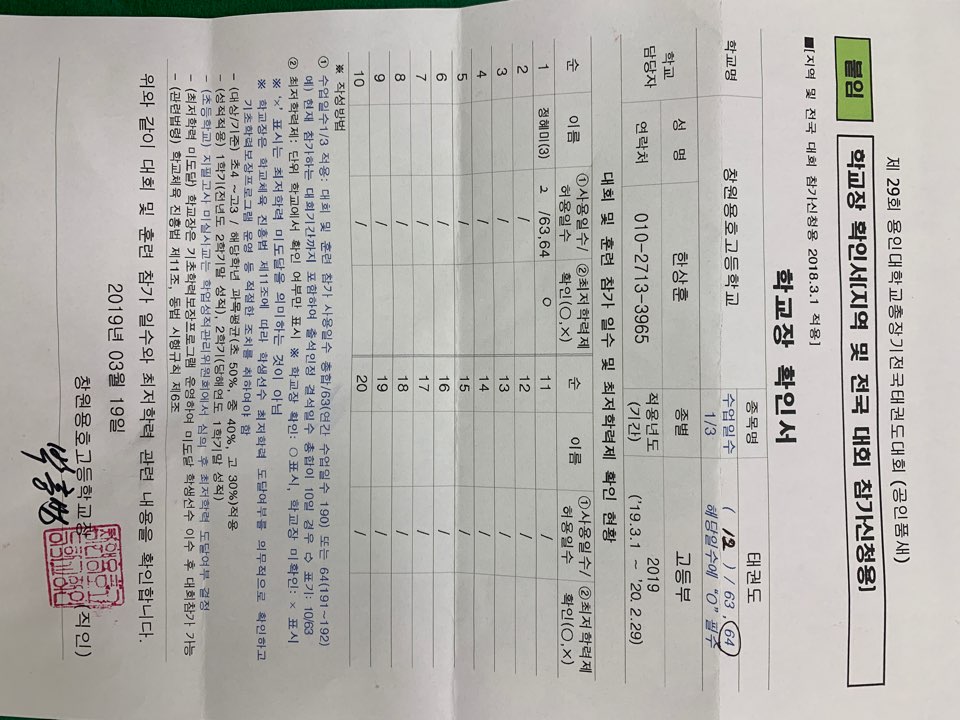 제 29회 용인대학교총장기전국태권도대회 (공인품새)
붙임
학교장 확인서[지역 및 전국 대회 참가신청용]
■[지역 및 전국 대회 참가신청용 2018.3.1 적용]
학교장 확인서
학교명 창원용호고등학교 종목명 태권도
수업일수 1/3 ( 12 ) / 63, 64 해당일수에 "O" 필수
학교 담당자 성 명 한상훈 종별 고등부
연락처 010-2713-3965 적용년도 (기간) 2019 ('19.3.1 ~ '20.2.29)
대회 및 훈련 참가 일수 및 최저학력제 확인 현황
순 이름 ①사용일수/허용일수 ②최저학력제 확인(○,×) 순 이름 ①사용일수/허용일수 ②최저학력제 확인(○,×)
1 정혜미(3) 2 /63.64 O 11 /
2 / 12 /
3 / 13 /
4 / 14 /
5 / 15 /
6 / 16 /
7 / 17 /
8 / 18 /
9 / 19 /
10 / 20 /
※ 작성방법
① 수업일수1/3 적용: 대회 및 훈련 참가 사용일수 총합/63(연간 수업일수 190) 또는 64(191~192)
예) 현재 참가하는 대회기간까지 포함하여 출석인정 결석일수 총합이 10일 경우 ⇨ 표기: 10/63
② 최저학력제: 단위 학교에서 확인 여부만 표시 ※ 학교장 확인: ○ 표시, 학교장 미확인: × 표시
※ '×' 표시는 최저학력 미도달을 의미하는 것이 아님
※ 학교장은 학교체육 진흥법 제11조에 따라 학생선수 최저학력 도달여부를 의무적으로 확인하고
기초학력보장프로그램 운영 등 적절한 조치를 취하여야 함
- (대상/기준) 초4 ~고3 / 해당학년 과목평균(초 50%, 중 40%, 고 30%)적용
- (성적적용) 1학기(전년도 2학기말 성적), 2학기(당해연도 1학기말 성적)
- (초등학교) 지필고사 미실시교는 학업성적관리위원회에서 심의 후 최저학력 도달여부 결정
- (최저학력 미도달) 학교장은 기초학력보장프로그램 운영하여 미도달 학생선수 이수 후 대회참가 가능
- (관련법령) 학교체육 진흥법 제11조, 동법 시행규칙 제6조
위와 같이 대회 및 훈련 참가 일수와 최저학력 관련 내용을 확인합니다.
2019년 03월 19일
창원용호고등학교장 (직인)